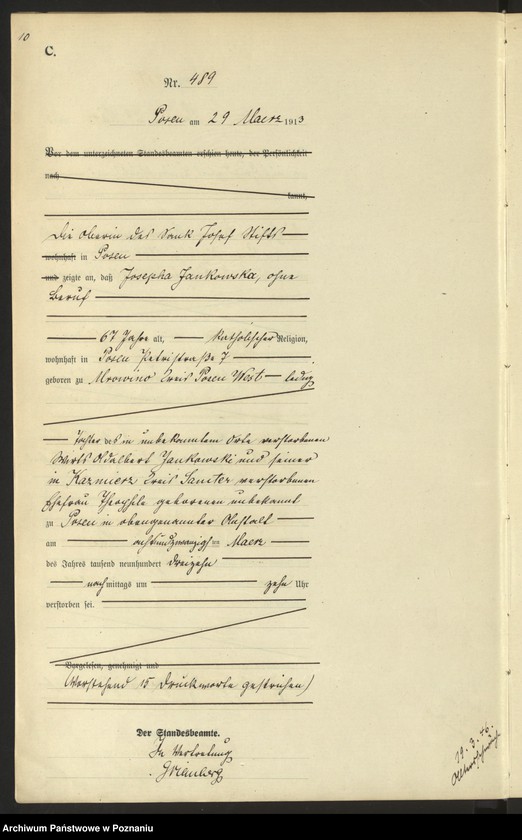 10
C.
Nr. 489
Posen am 29 Maerz 1913
Vor dem unterzeichneten Standesbeamten erschien heute, der Persönlichkeit
nach
kannt,
Die Oberin des Sank Josef Stifts
wohnhaft in Posen
und zeigte an, daß Josepha Jankowska, ohne
Beruf
67 Jahre alt, katholischer Religion,
wohnhaft in Posen Petristraße 7
geboren zu Mrowino Kreis Posen West ledig
Tochter des in unbekanntem Orte verstorbenen
Wirts Adalbert Jankowski und seiner
in Kazmierz Kreis Samter verstorbenen
Ehefrau Theophile geborenen unbekannt
zu Posen in obengenannter Anstalt
am achtundzwanzigsten Maerz
des Jahres tausend neunhundert dreizehn
nachmittags um zehn Uhr
verstorben sei.
Vorgelesen, genehmigt und
(Vorstehend 15 Druckworte gestrichen)
Der Standesbeamte.
In Vertretung
19.3.46.
Archiwum Państwowe w Poznaniu